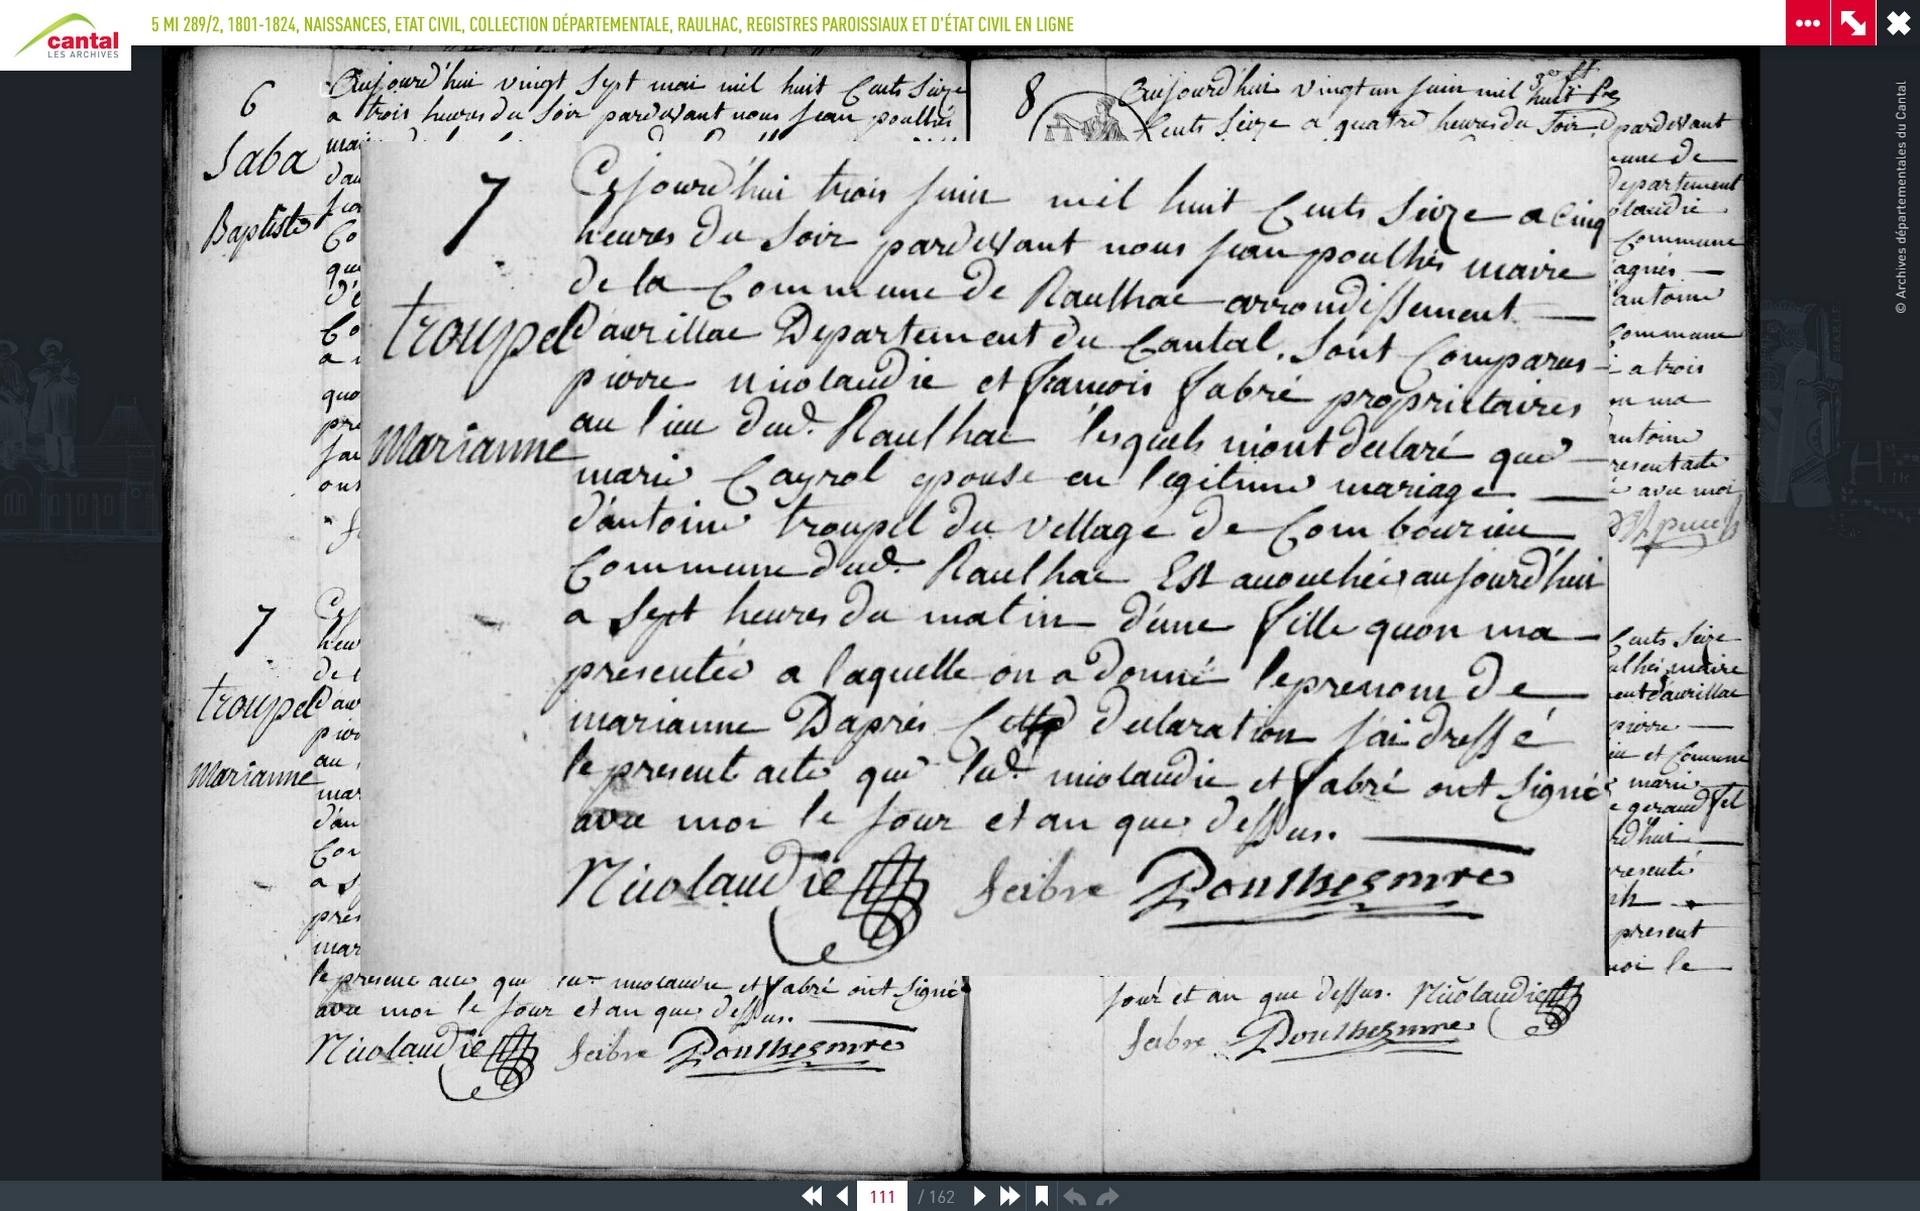 cantal
LES ARCHIVES
5 MI 289/2, 1801-1824, NAISSANCES, ETAT CIVIL, COLLECTION DÉPARTEMENTALE, RAULHAC, REGISTRES PAROISSIAUX ET D'ÉTAT CIVIL EN LIGNE
© Archives départementales du Cantal
6
Saba
Baptiste
Aujourd'hui vingt sept mai mil huit Cents Seize
a trois heures du Soir pardevant nous jean poulhés
8
Aujourd'hui vingt un juin mil huit
Cents Seize a quatre heures du Soir pardevant
7
troupel
Marianne
Cejourd'hui trois juin mil huit Cents Seize a Cinq
heures du Soir pardevant nous jean poulhés maire
de la Commune de Raulhac arrondissement
d'aurillac Departement du Cantal. Sont Comparus
pierre niolaudie et francois fabré proprietaires
au lieu dud. Raulhac lesquels m'ont declaré que
marie Cayrol epouse en legitime mariage
d'antoine troupel du village de Combourieu
Commune dud. Raulhac Est accouchée aujourd'hui
a Sept heures du matin d'une fille quon ma
presentée a laquelle on a donné le prenom de
marianne Daprés Cette declaration j'ai dressé
le present acte que lesd. niolaudie et fabré ont Signé
avec moi le jour et an que dessus.
Niolaudie fabre Poulhes mre
7
troupel
Marianne
le present acte que lesd. niolaudie et fabré ont Signé
avec moi le jour et an que dessus.
Niolaudie fabre Poulhes mre
une de
departement
Commune
agnés
antoine
Commune
a trois
on ma
antoine
present acte
avec moi
Cents Seize
maire
d'aurillac
pierre
et Commune
marie
geraud
presenté
present
moi le
jour et an que dessus. Niolaudie
fabre Poulhes mre
111 / 162